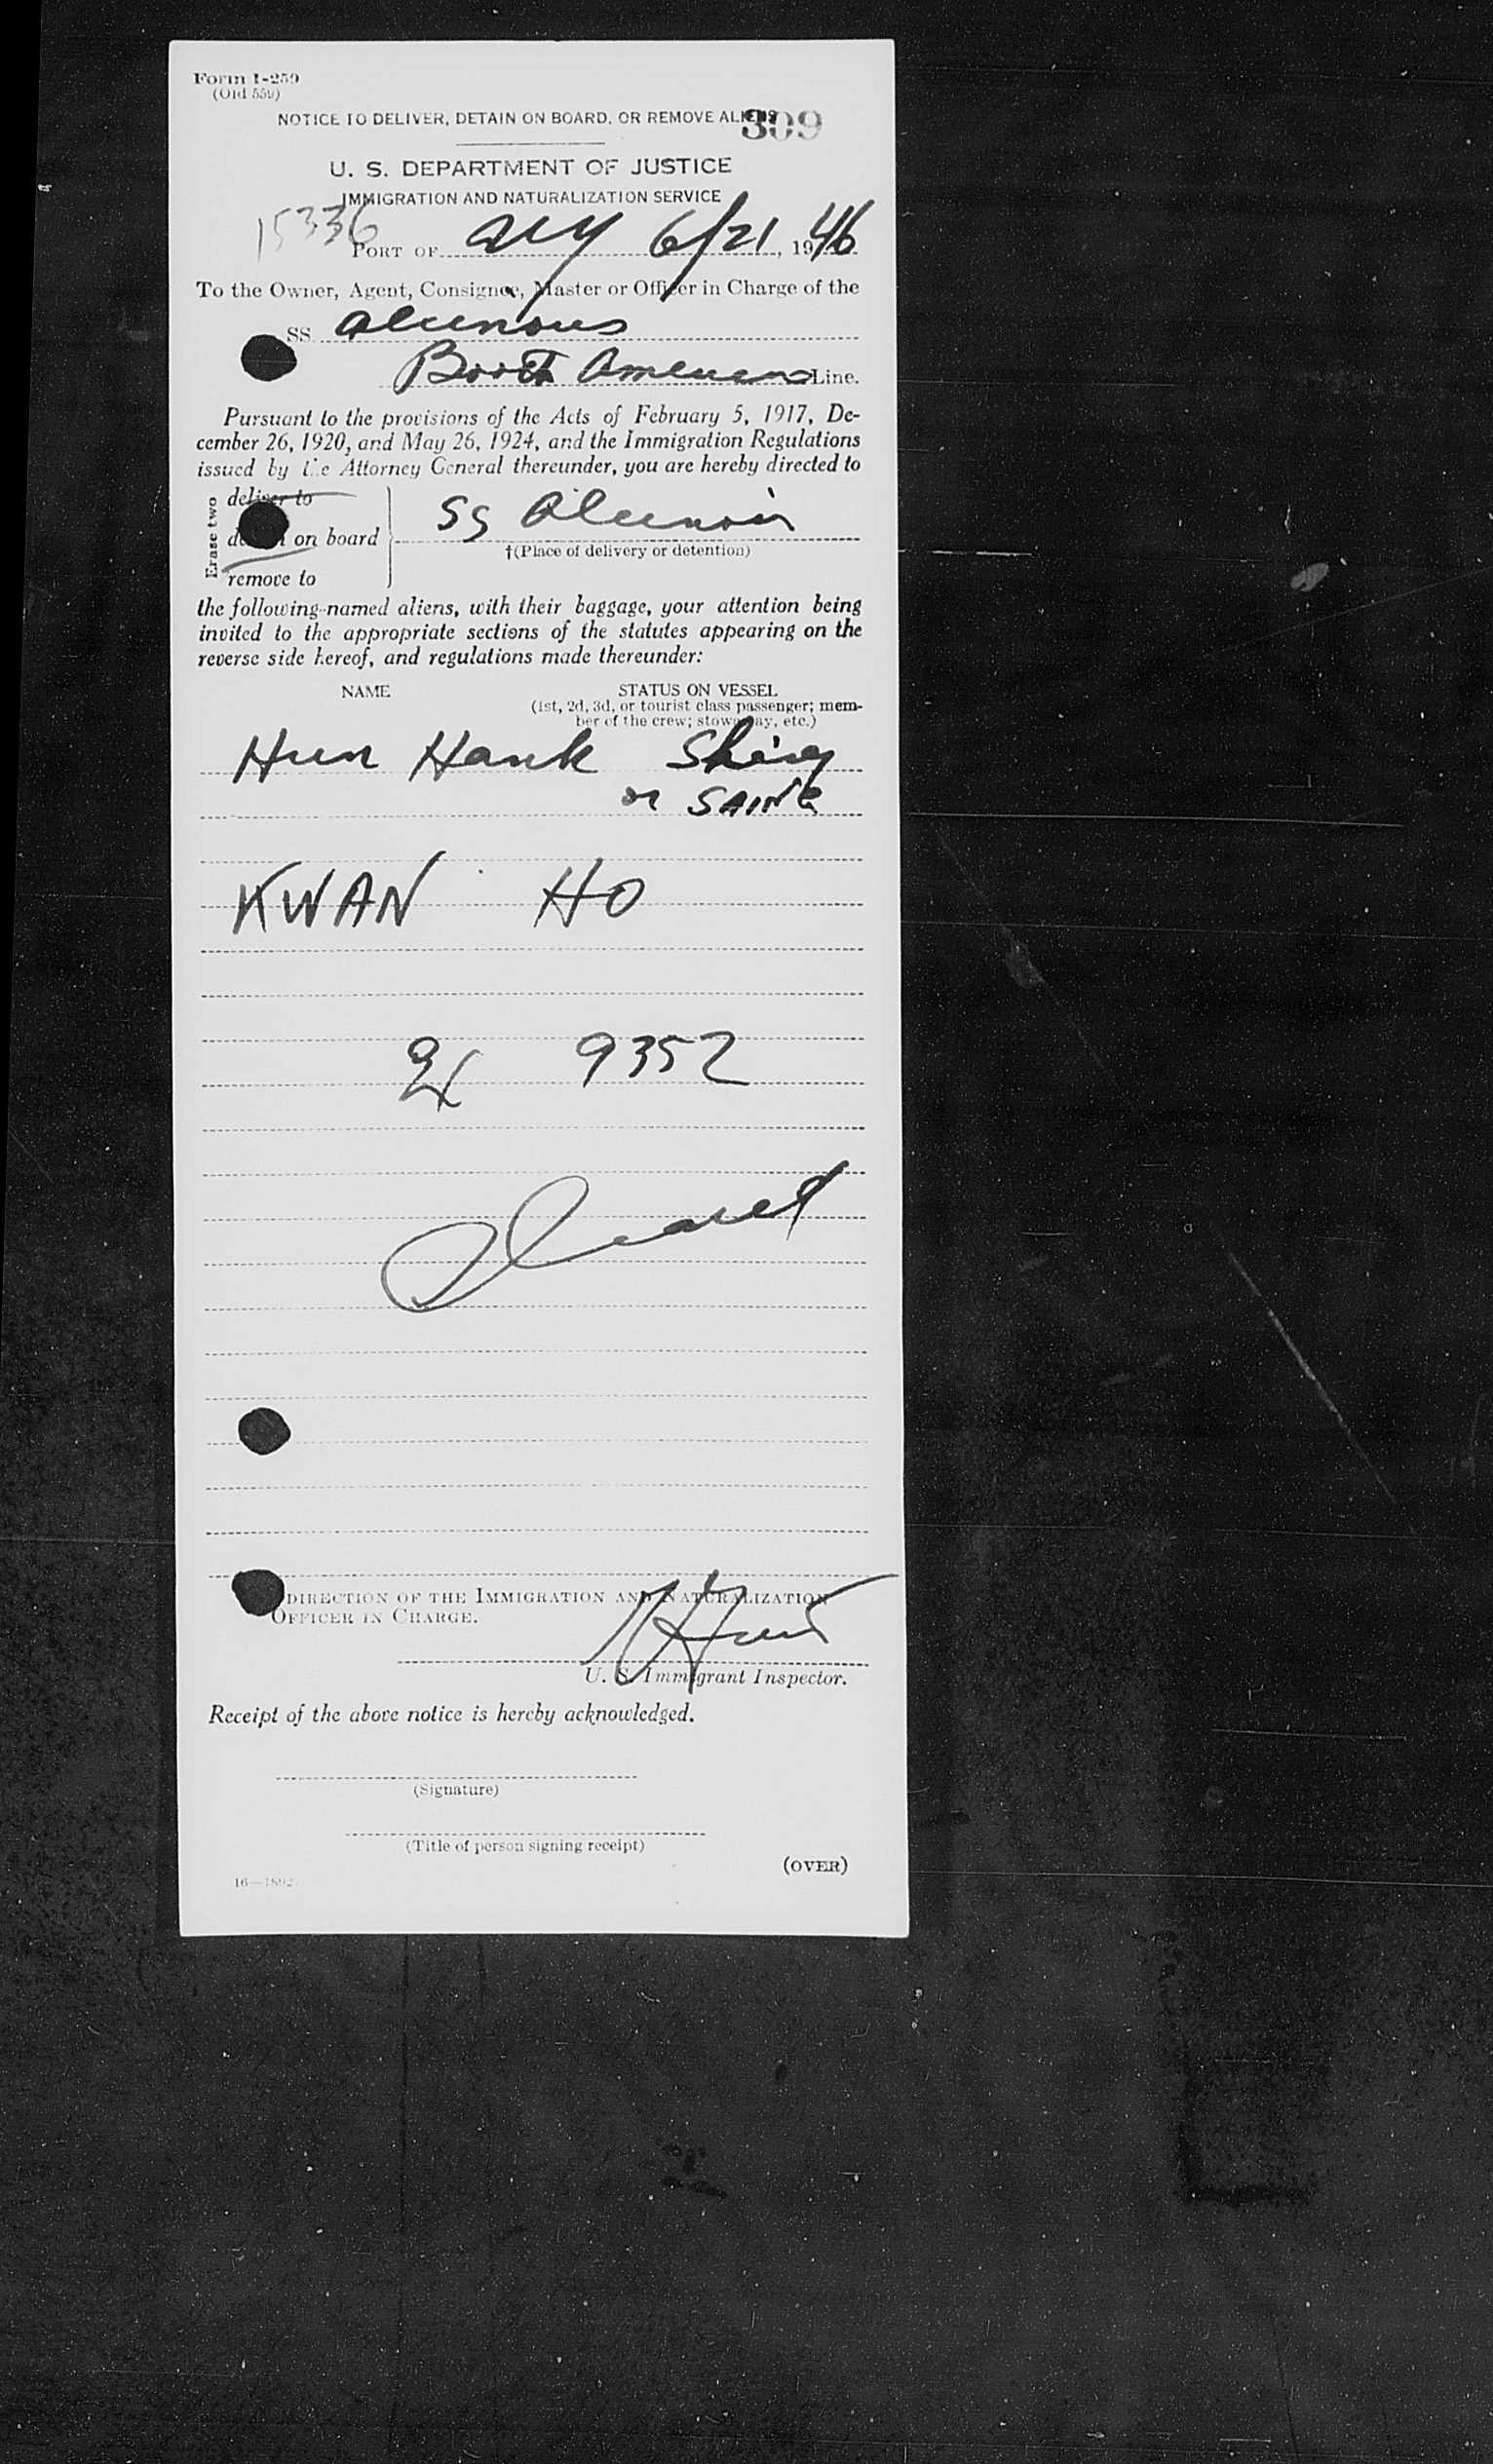 Form I-259
(Old 559)
NOTICE TO DELIVER, DETAIN ON BOARD, OR REMOVE ALIENS
309
U. S. DEPARTMENT OF JUSTICE
IMMIGRATION AND NATURALIZATION SERVICE
15336
PORT OF NY 6/21, 1946
To the Owner, Agent, Consignee, Master or Officer in Charge of the
SS
Booth American Line.
Pursuant to the provisions of the Acts of February 5, 1917, De-
cember 26, 1920, and May 26, 1924, and the Immigration Regulations
issued by the Attorney General thereunder, you are hereby directed to
Erase two
deliver to
on board
remove to
SS
†(Place of delivery or detention)
the following-named aliens, with their baggage, your attention being
invited to the appropriate sections of the statutes appearing on the
reverse side hereof, and regulations made thereunder:
NAME STATUS ON VESSEL
(1st, 2d, 3d, or tourist class passenger; mem-
ber of the crew; stowaway, etc.)
Hun Hank Shing
or SAING
KWAN HO
9352
DIRECTION OF THE IMMIGRATION AND NATURALIZATION
OFFICER IN CHARGE.
U. S. Immigrant Inspector.
Receipt of the above notice is hereby acknowledged.
(Signature)
(Title of person signing receipt)
(OVER)